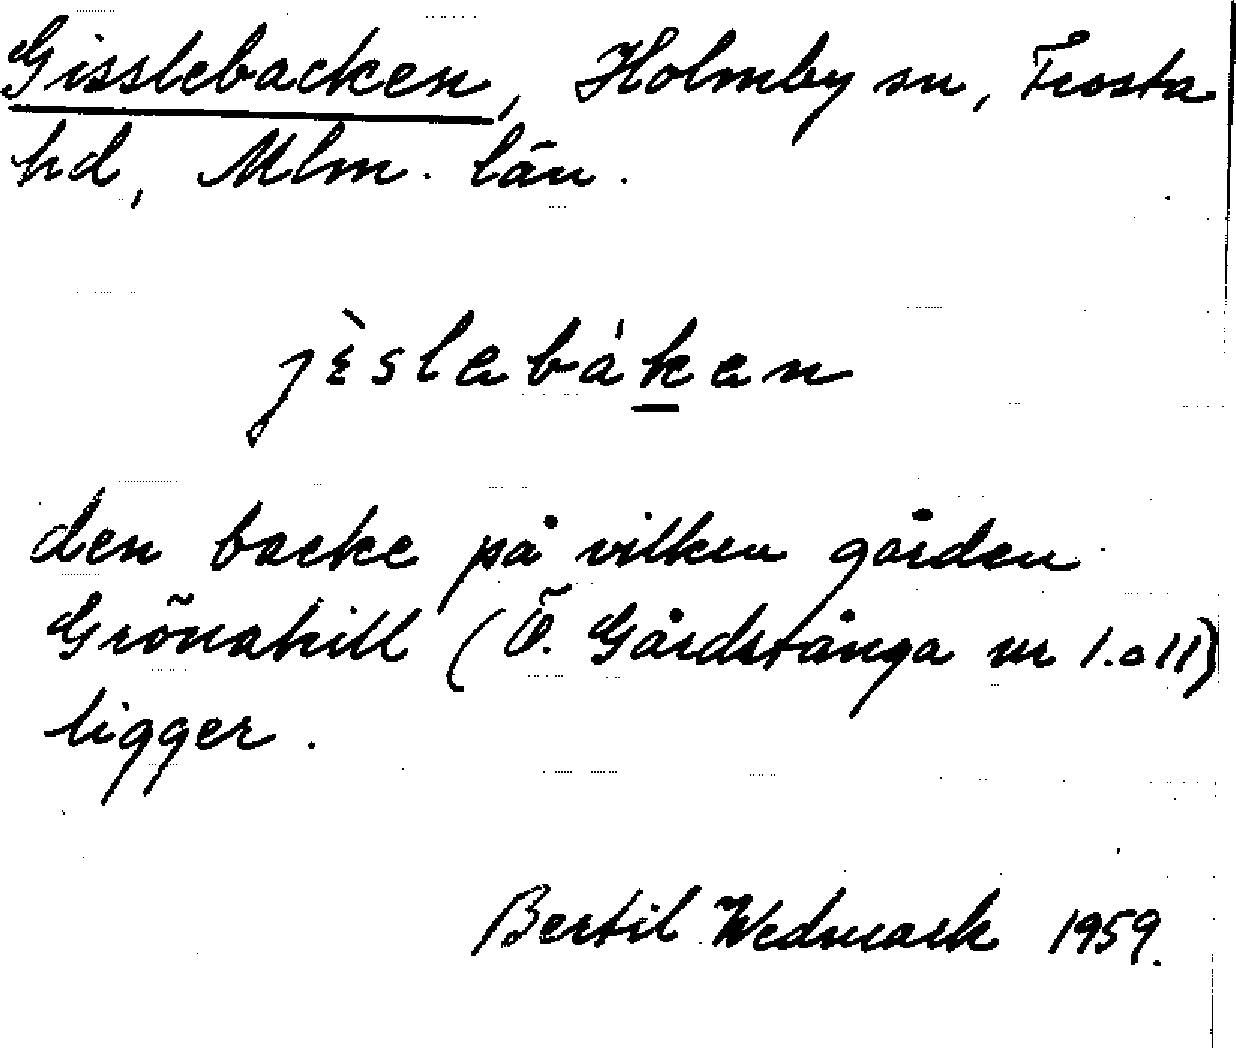 Gisslebacken, Holmby sn, Frosta
hd, Mlm. län.
jìslebáken
den backe på vilken gården
Grönahill (Ö. Gårdstånga nr 1. o 11)
ligger.
Bertil Wedmark 1959.